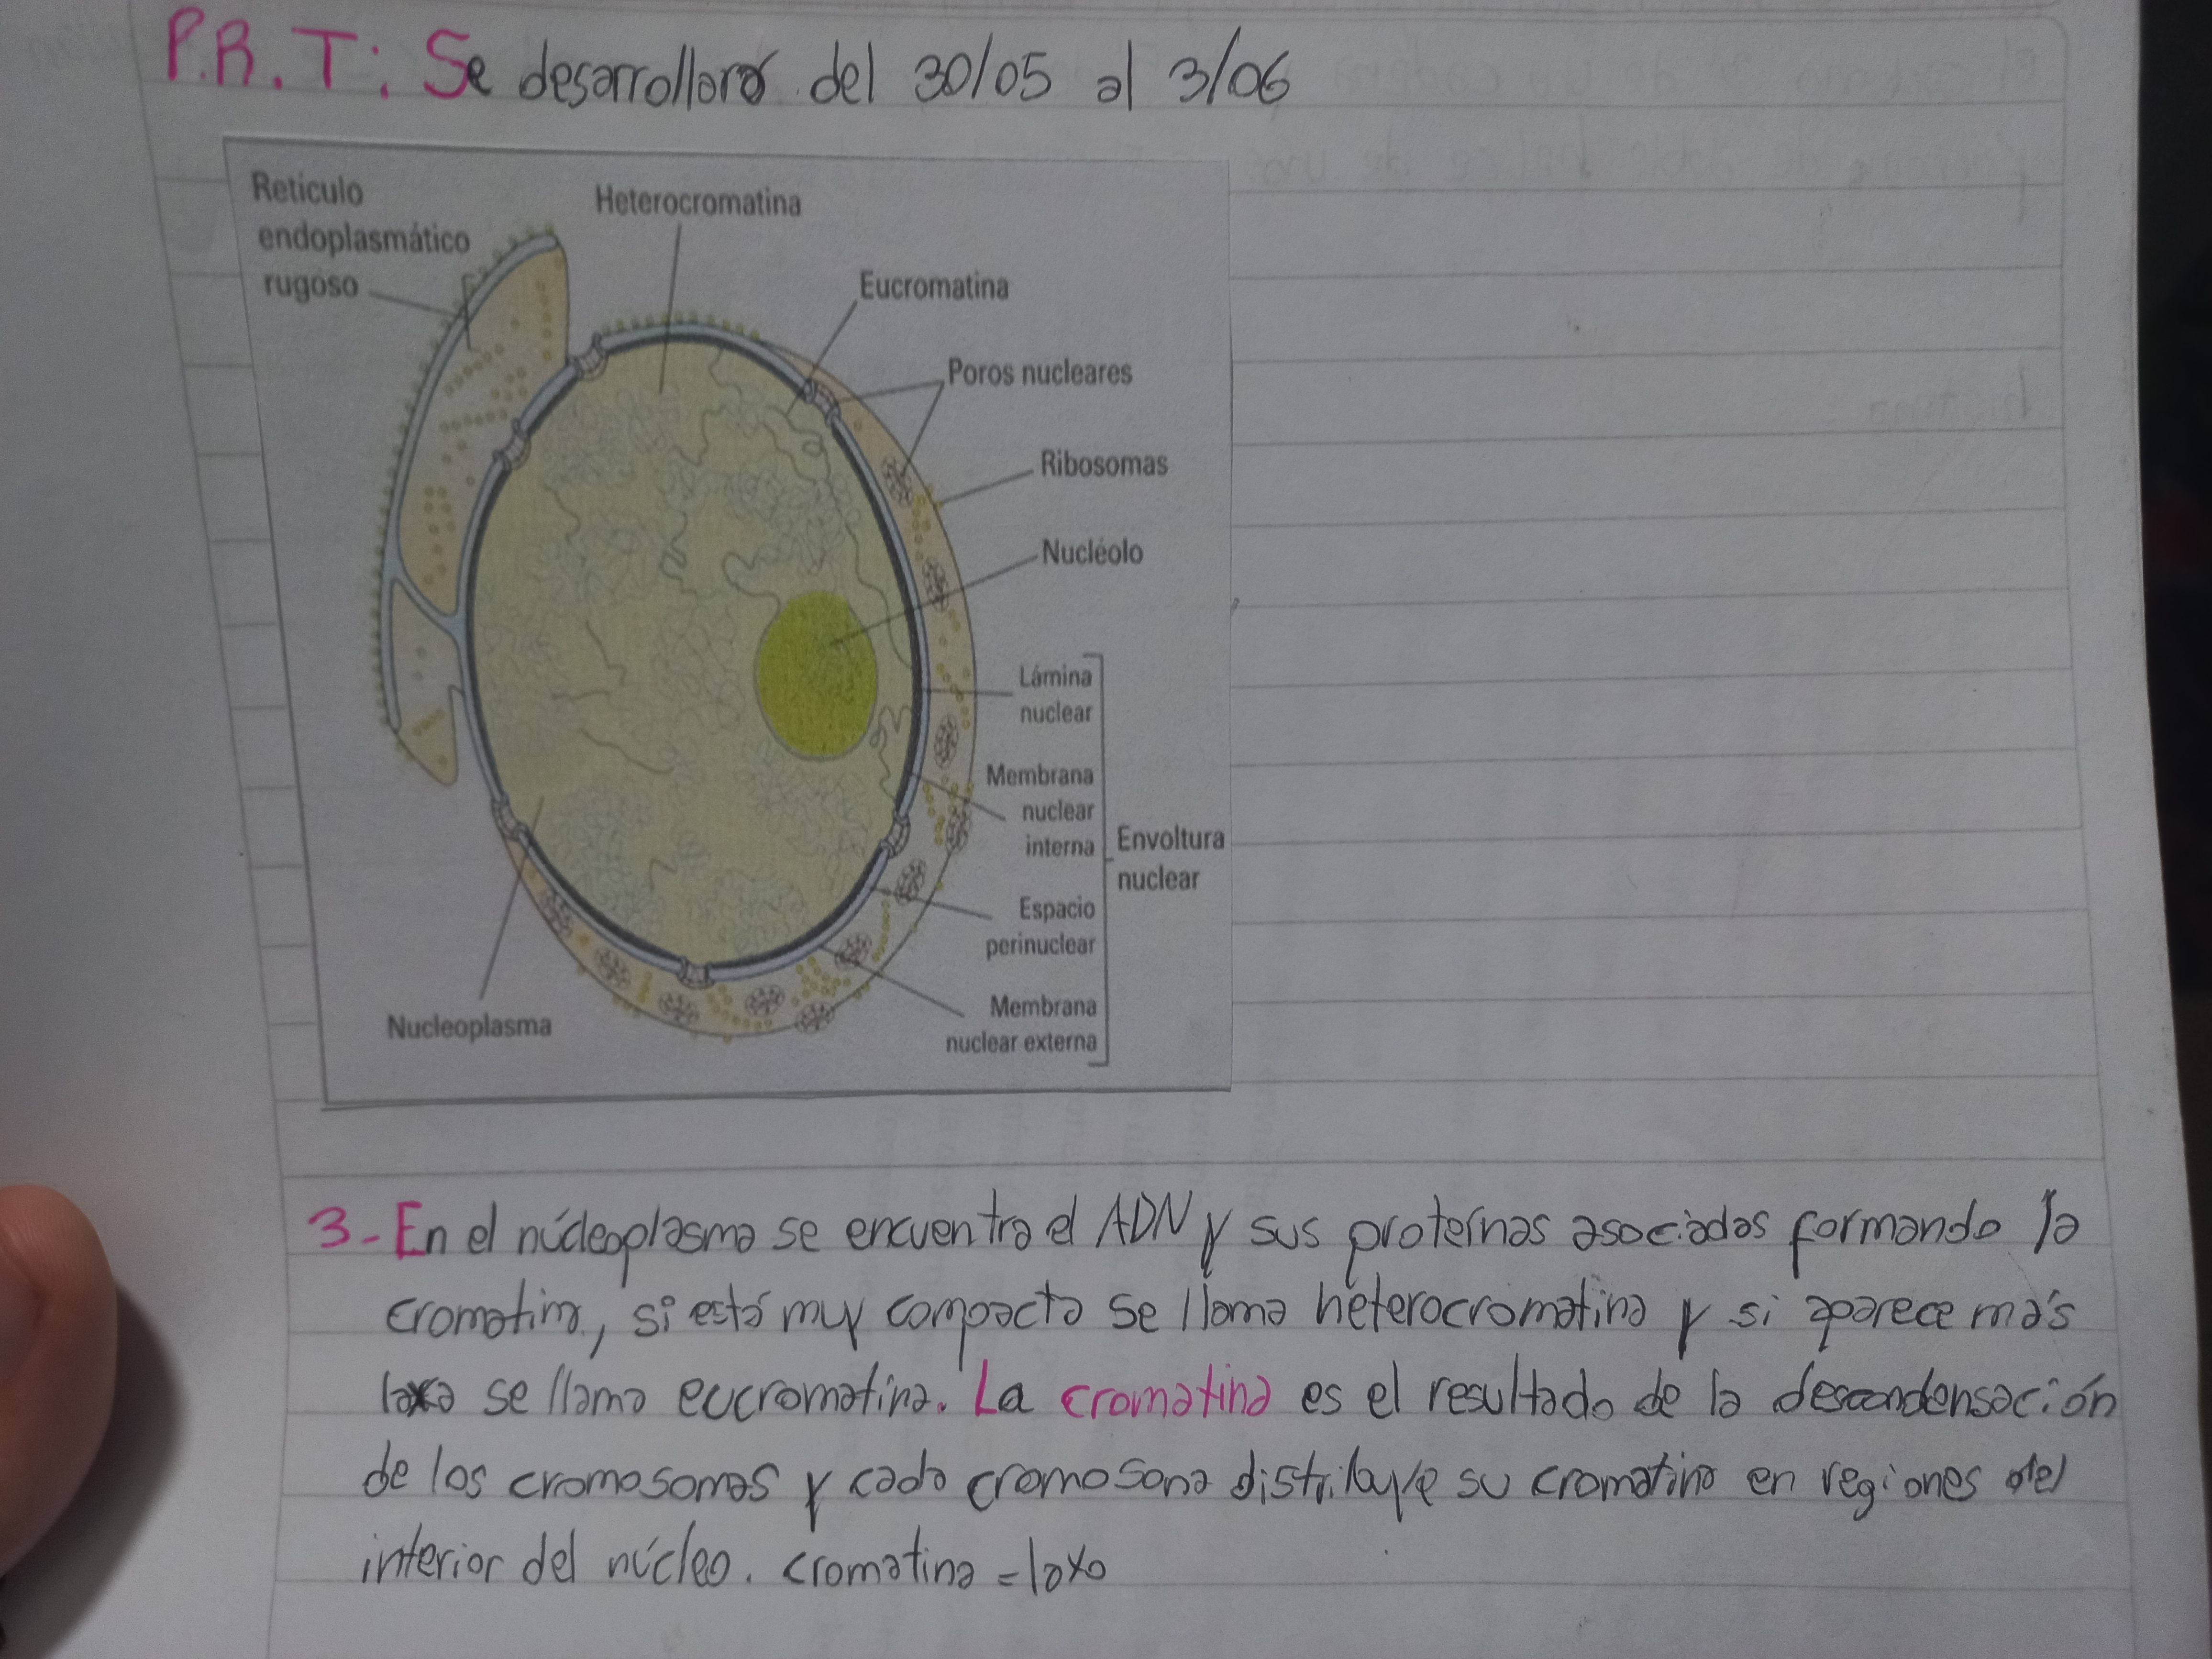 P.R.T: Se desarrollará del 30/05 al 3/06
Retículo
endoplasmático
rugoso
Heterocromatina
Eucromatina
Poros nucleares
Ribosomas
Nucléolo
Lámina
nuclear
Membrana
nuclear
interna
Envoltura
nuclear
Espacio
perinuclear
Membrana
nuclear externa
Nucleoplasma
3- En el núcleoplasma se encuentra el ADN y sus proteínas asociadas formando la
cromatina, si está muy compacta se llama heterocromatina y si aparece más
laxa se llama eucromatina. La cromatina es el resultado de la descondensación
de los cromosomas y cada cromosoma distribuye su cromatina en regiones del
interior del núcleo. cromatina = laxo